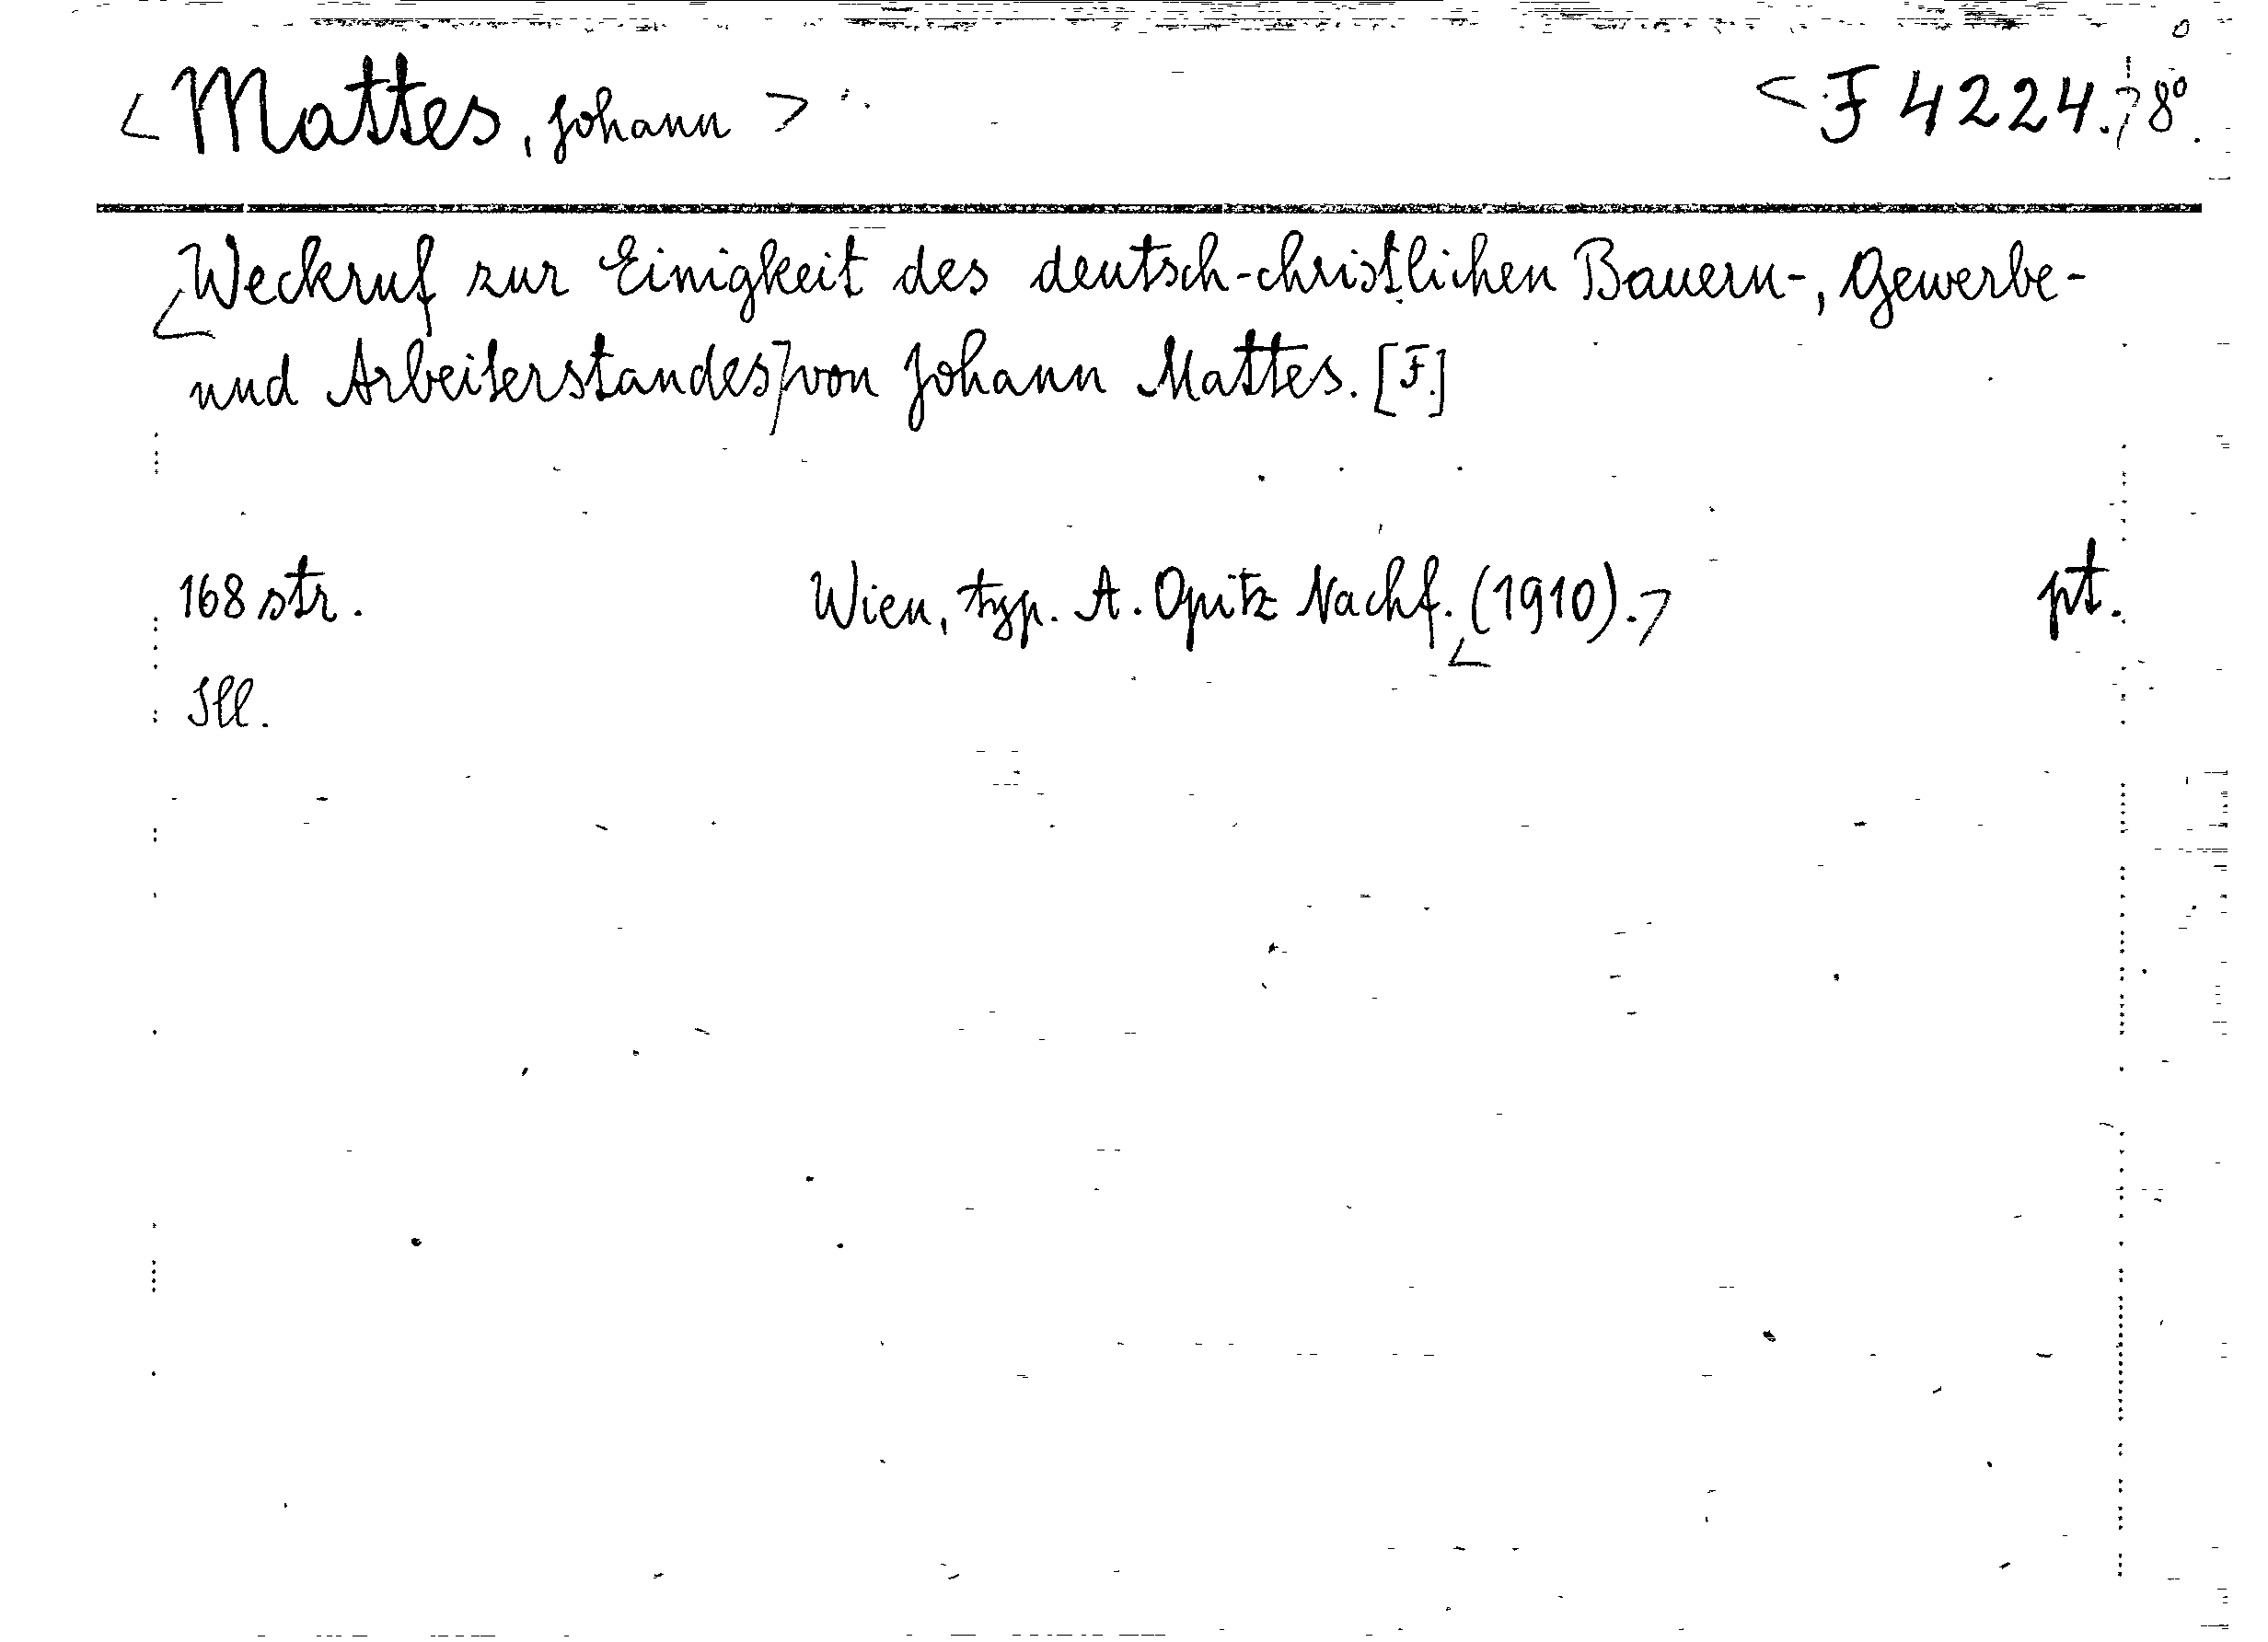 <Mattes, Johann> <F 4224.> 8°.
<Weckruf zur Einigkeit des deutsch-christlichen Bauern-, Gewerbe-
und Arbeiterstandes> von Johann Mattes. [F.]
168 str. Wien, typ. A. Opitz Nachf. <(1910).> pt.
Ill.